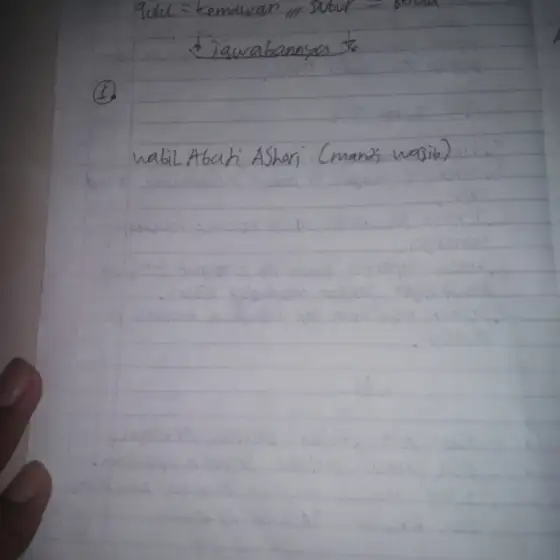 qubul = kemaluan ,,, dubur =
Jawabannya
1.
Nabil Abadi Ashari (mandi wajib)